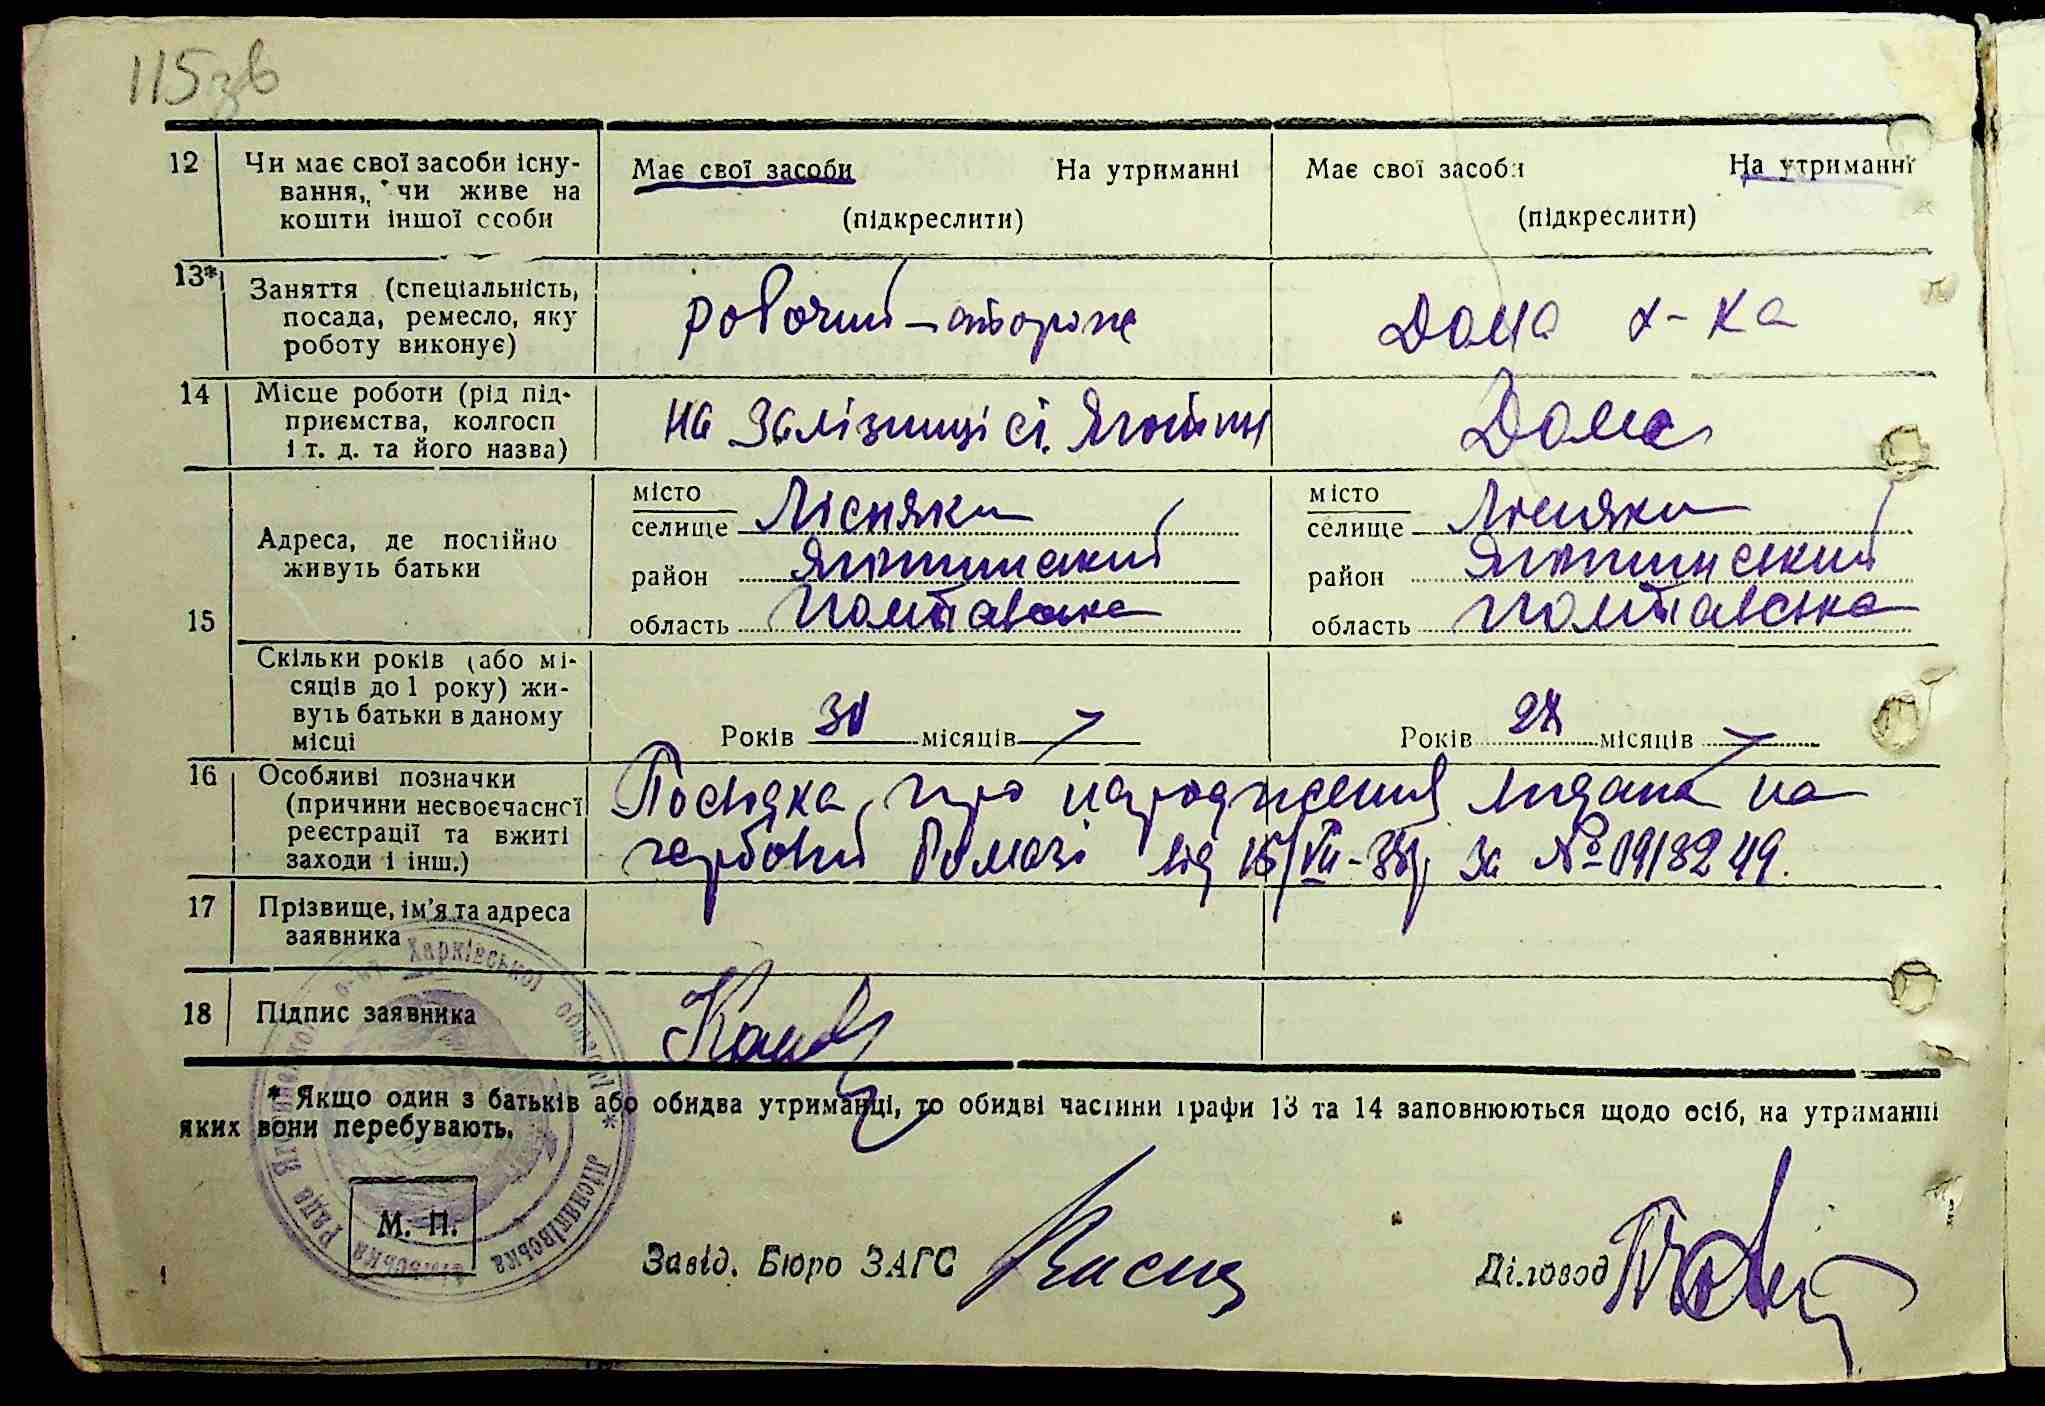 115зв
12 Чи має свої засоби існу-
вання, чи живе на
кошти іншої особи
Має свої засоби На утриманні
(підкреслити)
Має свої засоби На утриманні
(підкреслити)
13* Заняття (спеціальність,
посада, ремесло, яку
роботу виконує)
робочий – сторож
Дома х-ка
14 Місце роботи (рід під-
приємства, колгосп
і т. д. та його назва)
на залізниці ст. Яготин
Дома
15
Адреса, де постійно
живуть батьки
місто
селище Лісняки
район Яготинський
область Полтавська
місто
селище Лісняки
район Яготинський
область Полтавська
Скільки років (або мі-
сяців до 1 року) жи-
вуть батьки в даному
місці
Років місяців
Років місяців
16 Особливі позначки
(причини несвоєчасної
реєстрації та вжиті
заходи і інш.)
Посвідка про народження видана на
гербовій бомазі від 15/VII- за № 0913249.
17 Прізвище, ім'я та адреса
заявника
18 Підпис заявника
* Якщо один з батьків або обидва утриманці, то обидві частини графи 13 та 14 заповнюються щодо осіб, на утриманні
яких вони перебувають.
Харківської області * Лісняківська сільська Рада
М. П.
Завід. Бюро ЗАГС
Діловод